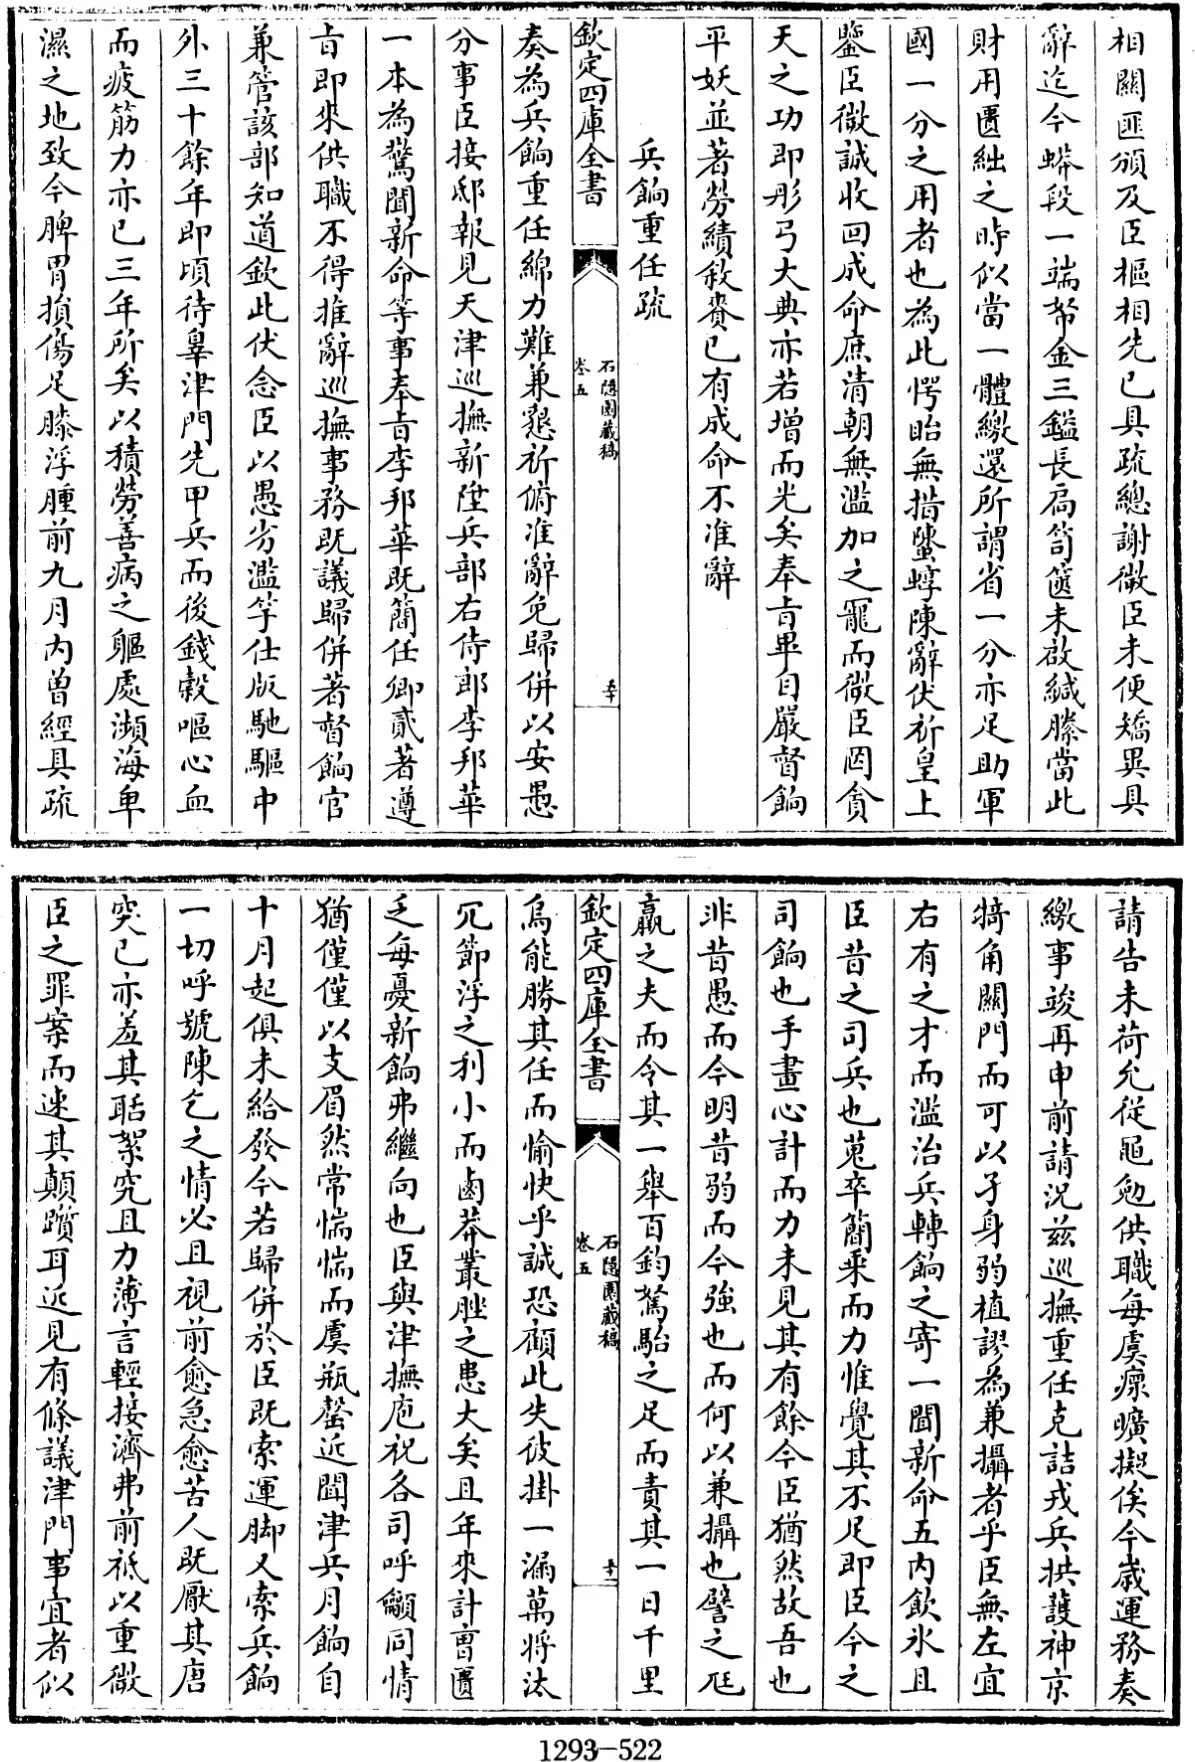 相關匪頒及臣樞相先已具疏總謝微臣未便矯異具
辭迄今蟒段一端帑金三鎰長扃笥篋未啟緘縢當此
財用匱絀之時似當一體繳還所謂省一分亦足助軍
國一分之用者也為此愕眙無措蠁蜳陳辭伏祈皇上
鑒臣微誠收回成命庶清朝無濫加之寵而微臣罔貪
天之功即彤弓大典亦若增而光矣奉㫖畢自嚴督餉
平妖並著勞績敘賚已有成命不准辭
兵餉重任疏
欽定四庫全書
石隱園藏稿
卷五
五十
奏為兵餉重任綿力難兼懇祈俯准辭免歸併以安愚
分事臣接邸報見天津巡撫新陞兵部右侍郎李邦華
一本為驚聞新命等事奉㫖李邦華既簡任卿貳著遵
㫖即來供職不得推辭巡撫事務既議歸併著督餉官
兼管該部知道欽此伏念臣以愚劣濫竽仕版馳驅中
外三十餘年即頃待辠津門先甲兵而後錢穀嘔心血
而疲筋力亦已三年所矣以積勞善病之軀處瀕海卑
濕之地致今脾胃損傷足膝浮腫前九月内曾經具疏
請告未荷允從黽勉供職每虞瘝曠擬俟今歲運務奏
繳事竣再申前請況兹巡撫重任克詰戎兵拱護神京
犄角關門而可以孑身弱植謬為兼攝者乎臣無左宜
右有之才而濫治兵轉餉之寄一聞新命五内飲氷且
臣昔之司兵也蒐卒簡乘而力惟覺其不足即臣今之
司餉也手畫心計而力未見其有餘今臣猶然故吾也
非昔愚而今明昔弱而今強也而何以兼攝也譬之尫
羸之夫而令其一舉百鈞駑駘之足而責其一日千里
欽定四庫全書
石隱園藏稿
卷五
五十一
烏能勝其任而愉快乎誠恐顧此失彼掛一漏萬將汰
冗節浮之利小而鹵莽叢脞之患大矣且年來計曹匱
乏每憂新餉弗繼向也臣與津撫庖祝各司呼籲同情
猶僅僅以支眉然常惴惴而虞瓶罄近聞津兵月餉自
十月起俱未給發今若歸併於臣既索運脚又索兵餉
一切呼號陳乞之情必且視前愈急愈苦人既厭其唐
突已亦羞其聒絮究且力薄言輕接濟弗前祗以重微
臣之罪案而速其顛躓耳近見有條議津門事宜者似
1293—522